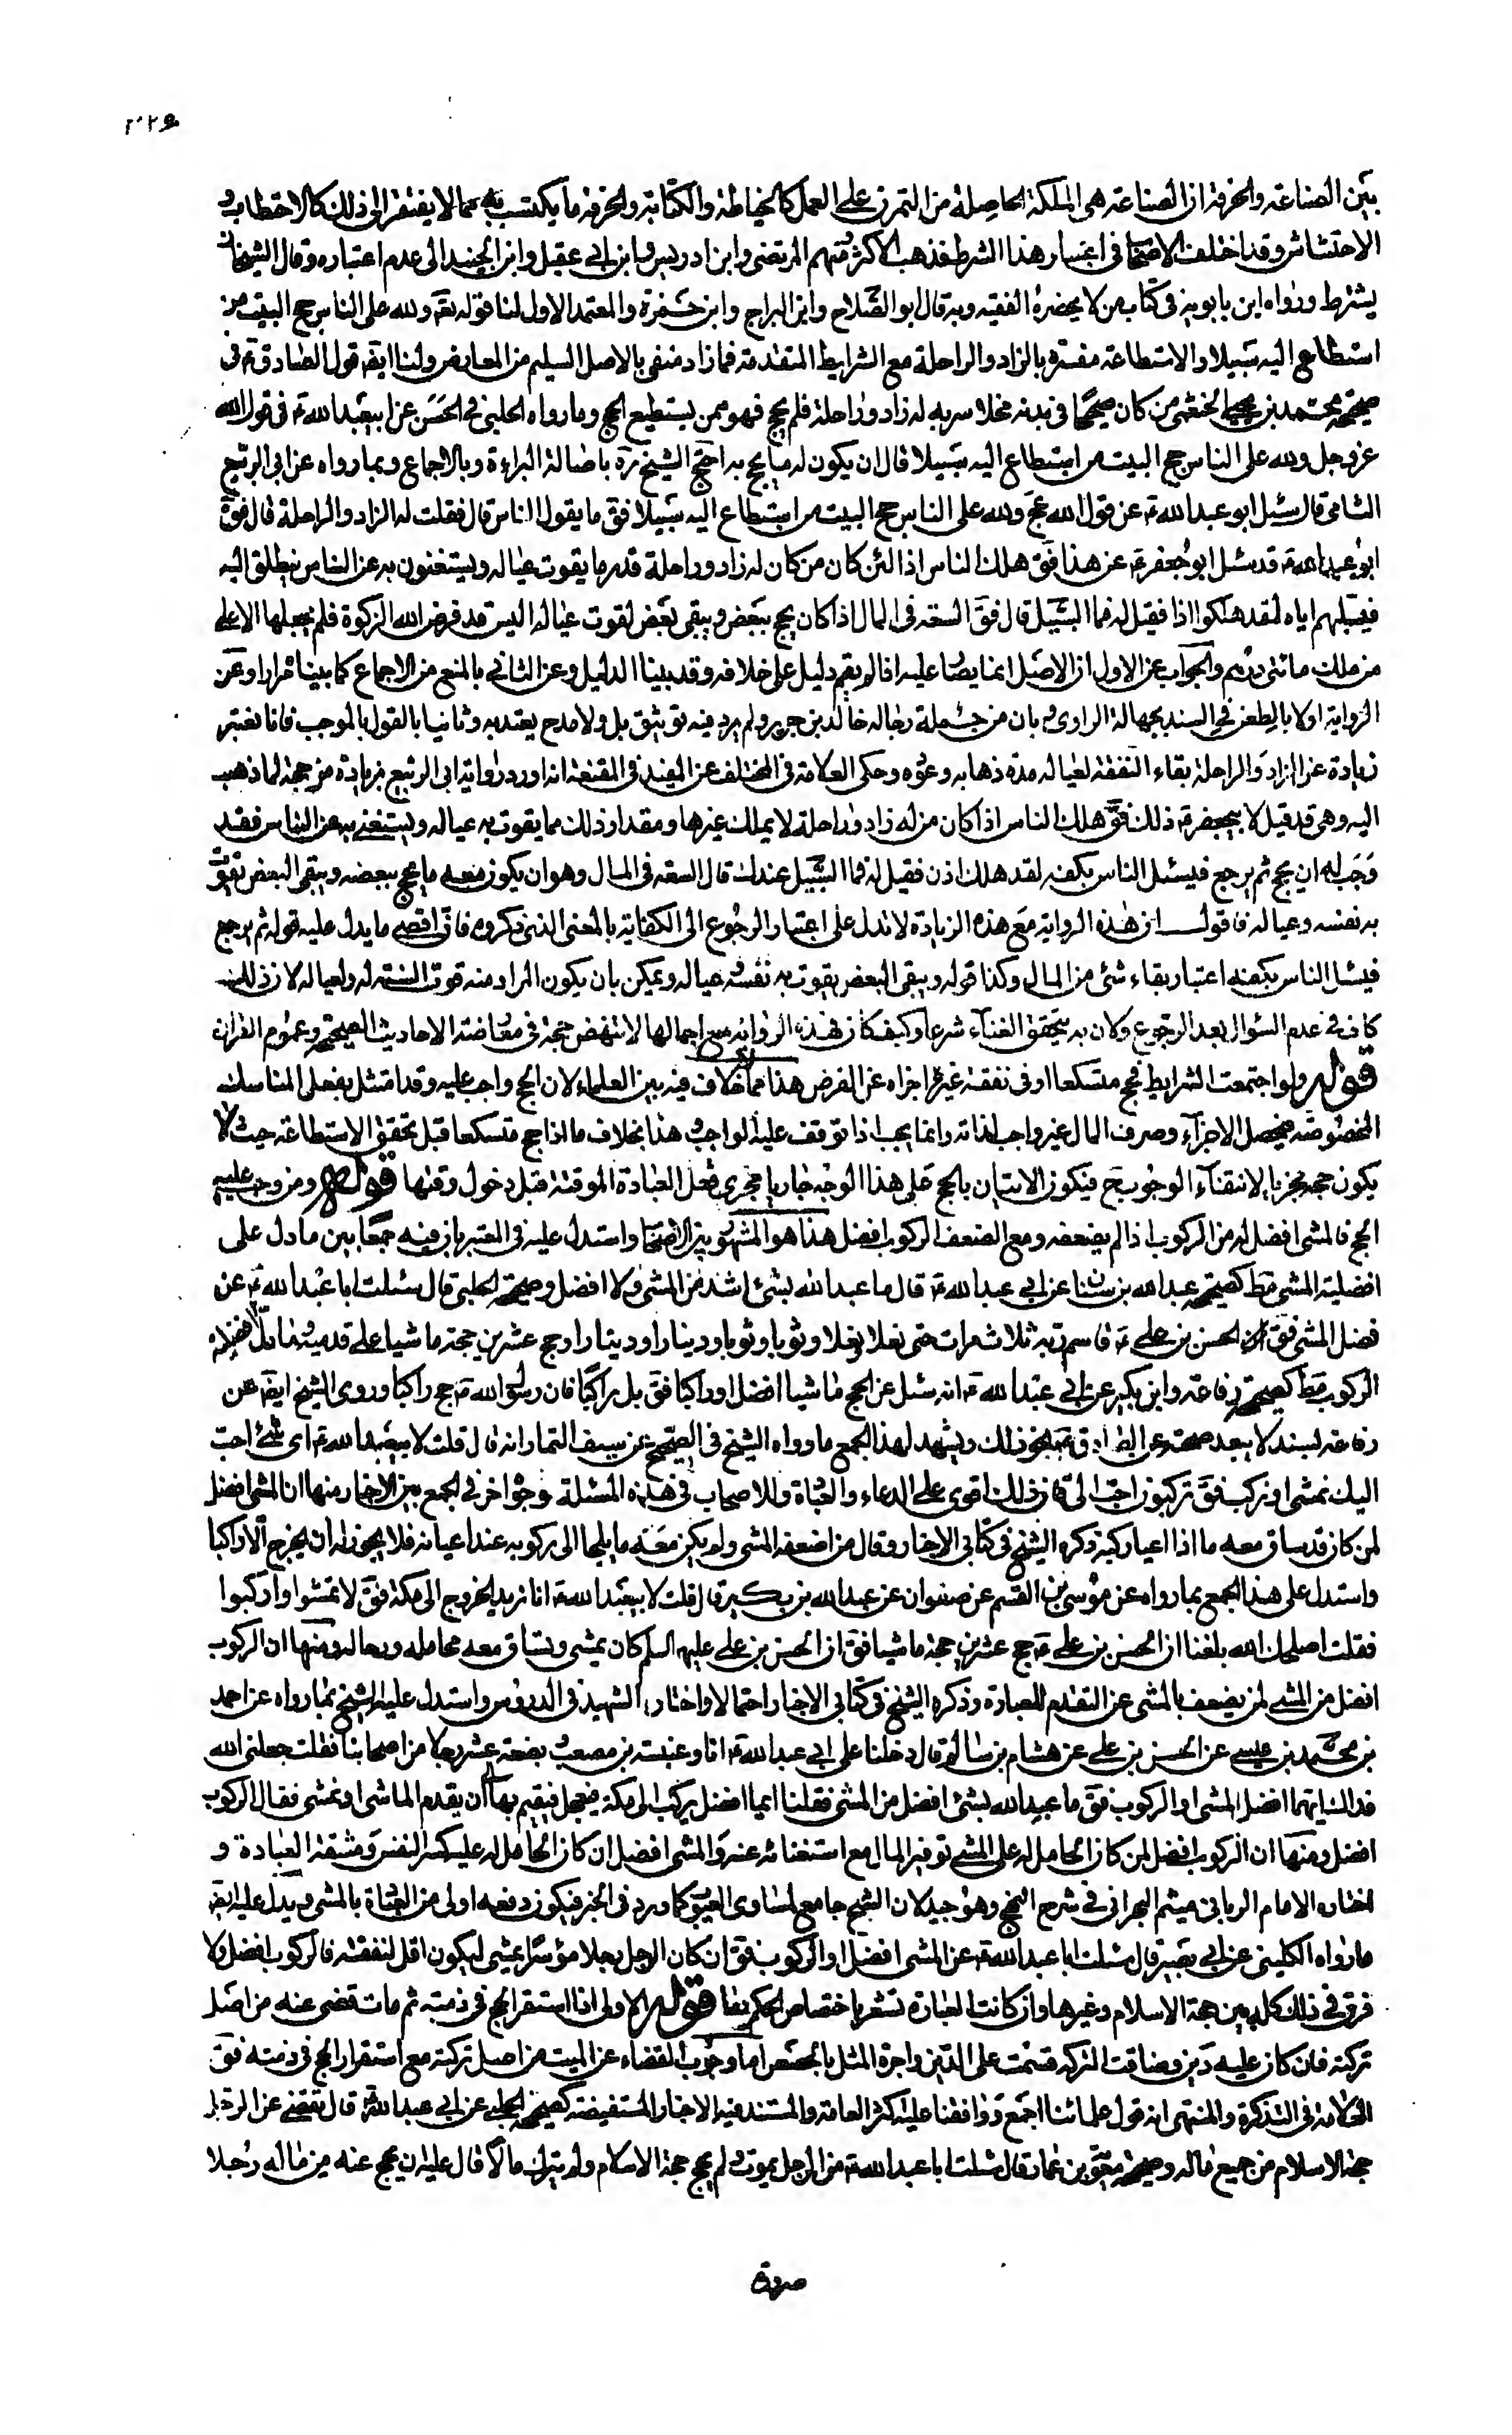 بين الصناعة والحرفة ان الصناعة هى الملكة الحاصلة من التمرن على العمل كالخياطة والكتابة والحرفة ما يكتسب به مما لا يفتقر الى ذلك كالاحتطاب و
الاحتشاش وقد اختلف الاصحاب فى اعتبار هذا الشرط فذهب الاكثر ومنهم المرتضى وابن ادريس وابن ابى عقيل وابن الجنيد الى عدم اعتباره وقال الشيخان
يشترط ورواه ابن بابويه فى كتاب من لا يحضره الفقيه وبه قال ابو الصلاح وابن البراج وابن حمزة والمعتمد الاول لنا قوله تع ولله على الناس حج البيت من
استطاع اليه سبيلا والاستطاعة مفسرة بالزاد والراحلة مع الشرايط المتقدمة فما زاد منفى بالاصل السليم من المعارض ولنا ايضا قول الصادق ع فى
صحيحة محمد بن يحيى الخثعمى من كان صحيحا فى بدنه مخلا سربه له زاد وراحلة فلم يحج فهو ممن يستطيع الحج وما رواه الحلبى فى الحسن عن ابيعبدالله ع فى قول الله
عز وجل ولله على الناس حج البيت من استطاع اليه سبيلا قال ان يكون له ما يحج به احتج الشيخ ره باصالة البراءة وبالاجماع وبما رواه عن ابى الربيع
الشامى قال سئل ابو عبد الله ع عن قول الله عج ولله على الناس حج البيت من استطاع اليه سبيلا فق ما يقول الناس قال فقلت له الزاد والراحلة قال فق
ابو عبد الله ع قد سئل ابو جعفر ع عن هذا فق هلك الناس اذا لئن كان من كان له زاد وراحلة قدر ما يقوت عياله ويستغنون به عن الناس ينطلق اليه
فيسلبهم اياه لقد هلكوا اذا فقيل له فما السبيل قال فق السعة فى المال اذا كان يحج ببعض ويبقى بعض لقوت عياله اليس قد فرض الله الزكوة فلم يجعلها الا على
من ملك مائتى درهم والجواب عن الاول ان الاصل انما يصار اليه اذا لم يقم دليل على خلافه وقد بينا الدليل وعن الثانى بالمنع من الاجماع كما بيناه مرارا وعن
الرواية اولا بالطعن فى السند بجهالة الراوى وبان من جملة رجاله خالد بن جرير ولم يرد فيه توثيق بل ولا مدح يعتد به وثانيا بالقول بالموجب فانا نعتبر
زيادة عن الزاد والراحلة بقاء النفقة لعياله مدة ذهابه وعوده وحكى العلامة فى المختلف عن المفيد فى المقنعة انه اورد رواية ابى الربيع بزيادة مرجحة لما ذهب
اليه وهى قد قيل لابيجعفر ع ذلك فق هلك الناس اذا كان من له زاد وراحلة لا يملك غيرها ومقدار ذلك مما يقوت به عياله ويستغنى به عن الناس فقد
وجب له ان يحج ثم يرجع فيسئل الناس بكفه لقد هلك اذن فقيل له فما السبيل عندك قال السعة فى المال وهو ان يكون معه ما يحج ببعضه ويبقى البعض يقوت
به نفسه وعياله فاقول ان هذه الرواية مع هذه الزيادة لا تدل على اعتبار الرجوع الى الكفاية بالمعنى الذى ذكروه فان اقصى ما يدل عليه قوله ثم يرجع
فيسئل الناس بكفه اعتبار بقاء شئ من المال وكذا قوله ويبقى البعض يقوت به نفسه وعياله ويمكن بان يكون المراد منه قوت السنة له ولعياله لان ذلك
كاف فى عدم السؤال بعد الرجوع ولان به يتحقق الغناء شرعا وكيف كان فهذه الرواية مع اجمالها لا تنهض حجة فى معارضة الاحاديث الصحيحة وعموم القران
قوله ولو اجتمعت الشرايط فحج متسكعا او فى نفقة غيره اجزاه عن الفرض هذا مما لا خلاف فيه بين العلماء لان الحج واجب عليه وقد امتثل بفعل المناسك
المخصوصة فيحصل الاجزاء وصرف المال غير واجب لذاته وانما يجب اذا توقف عليه الواجب وهذا بخلاف ما اذا حج متسكعا قبل تحقق الاستطاعة حيث لا
يكون حجه مجزيا لانتفاء الوجوب ح فيكون الاتيان بالحج على هذا الوجه جاريا مجرى فعل العبادة الموقتة قبل دخول وقتها قوله ومن وجب عليه
الحج فالمشى افضل له من الركوب اذا لم يضعفه ومع الضعف الركوب افضل هذا هو المشهور بين الاصحاب واستدل عليه فى المعتبر بان فيه جمعا بين ما دل على
افضلية المشى مط كصحيحة عبد الله بن سنان عن ابى عبد الله ع قال ما عبد الله بشئ اشد من المشى ولا افضل وصحيحة الحلبى قال سئلت ابا عبد الله ع عن
فضل المشى فق ان الحسن بن على ع قاسم ربه ثلاث مرات حتى نعلا ونعلا وثوبا وثوبا ودينارا ودينارا وحج عشرين حجة ماشيا على قدميه وما دل على افضلية
الركوب مط كصحيحة رفاعة وابن بكير عن ابى عبد الله ع انه سئل عن الحج ماشيا افضل او راكبا فق بل راكبا فان رسول الله ص حج راكبا وروى الشيخ ايضا عن
رفاعة بسند لا يبعد صحته عن الصادق ع نحو ذلك ويشهد لهذا الجمع ما رواه الشيخ فى الصحيح عن سيف التمار انه قال قلت لابيعبدالله ع اى شئ احب
اليك نمشى او نركب فق تركبون احب الى فان ذلك اقوى على الدعاء والعبادة وللاصحاب فى هذه المسئلة وجوه اخر فى الجمع بين الاخبار منها ان المشى افضل
لمن كان قد ساق معه ما اذا اعيا ركبه ذكره الشيخ فى كتابى الاخبار وقال من اضعفه المشى ولم يكن معه ما يلجا الى ركوبه عند اعيائه فلا يجوز له ان يخرج الا راكبا
واستدل على هذا الجمع بما رواه عن موسى بن القسم عن صفوان عن عبد الله بن بكير قال قلت لابيعبدالله ع انا نريد الخروج الى مكة فق لا تمشوا واركبوا
فقلت اصلحك الله بلغنا ان الحسن بن على ع حج عشرين حجة ماشيا فق ان الحسن بن على عليه السلم كان يمشى وتساق معه محامله ورحاله ومنها ان الركوب
افضل من المشى لمن يضعف بالمشى عن التقدم للعبادة وذكره الشيخ فى كتابى الاخبار احتمالا واختاره الشهيد فى الدروس واستدل عليه الشيخ بما رواه عن احمد
بن محمد بن عيسى عن الحسن بن على عن هشام بن سالم قال دخلنا على ابى عبد الله ع انا وعنبسة بن مصعب وبضعة عشر رجلا من اصحابنا فقلت جعلنى الله
فداك ايهما افضل المشى او الركوب فق ما عبد الله بشئ افضل من المشى فقلنا ايما افضل يركب الى مكة فيعجل فيقيم بها الى ان يقدم الماشى او نمشى فقال الركوب
افضل ومنها ان الركوب افضل لمن كان الحامل له على المشى توفير المال مع استغنائه عنه والمشى افضل ان كان الحامل له عليه كسر النفس ومشقة العبادة و
اختاره الامام الربانى ميثم البحرانى فى شرح النهج وهو جيد لان الشح جامع لمساوى العيوب كما ورد فى الخبر فيكون دفعه اولى من العبادة بالمشى ويدل عليه ايضا
ما رواه الكلينى عن ابى بصير قال سئلت ابا عبد الله ع عن المشى افضل او الركوب فق ان كان الرجل رجلا موسرا يمشى ليكون اقل لنفقته فالركوب افضل ولا
فرق فى ذلك كله بين حجة الاسلام وغيرها وان كانت العبارة تشعر باختصاص الحكم بها قوله الاولى اذا استقر الحج فى ذمته ثم مات قضى عنه من اصل
تركته فان كان عليه دين وضاقت التركة قسمت على الدين واجرة المثل بالحصص اما وجوب القضاء عن الميت من اصل تركته مع استقرار الحج فى ذمته فق
العلامة فى التذكرة والمنتهى انه قول علمائنا اجمع ووافقنا عليه اكثر العامة والمستند فيه الاخبار المستفيضة كصحيحة الحلبى عن ابى عبد الله ع قال تقضى عن الرجل
حجة الاسلام من جميع ماله وصحيحة معوية بن عمار قال سئلت ابا عبد الله ع عن الرجل يموت ولم يحج حجة الاسلام ولم يترك مالا قال عليه ان يحج عنه من ماله رجلا
صرورة